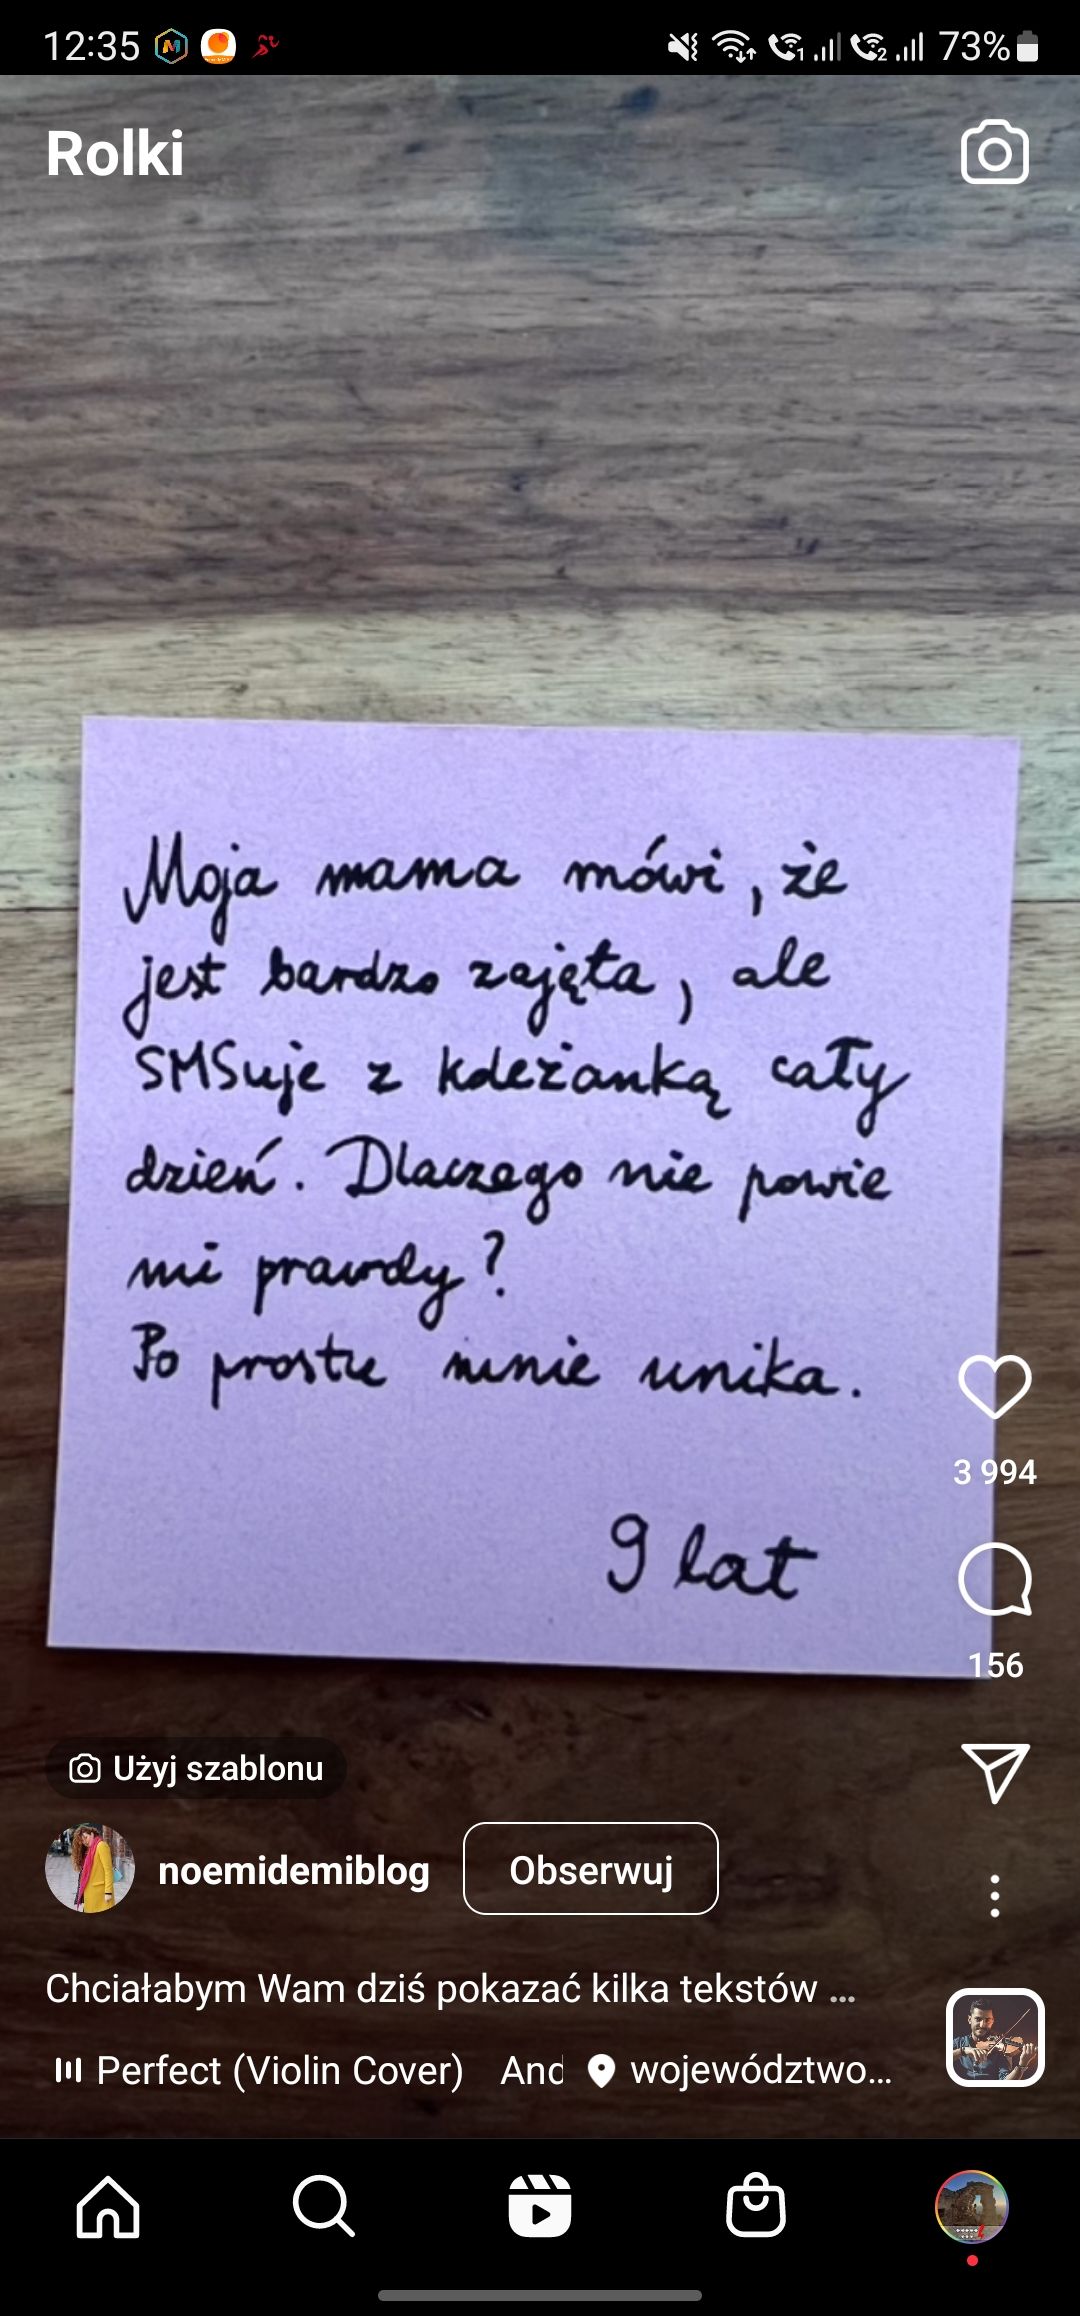 12:35
73%
Rolki
Moja mama mówi, że
jest bardzo zajęta, ale
SMSuje z koleżanką cały
dzień. Dlaczego nie powie
mi prawdy?
Po prostu mnie unika.
9 lat
3 994
156
Użyj szablonu
noemidemiblog
Obserwuj
Chciałabym Wam dziś pokazać kilka tekstów ...
Perfect (Violin Cover) And województwo...